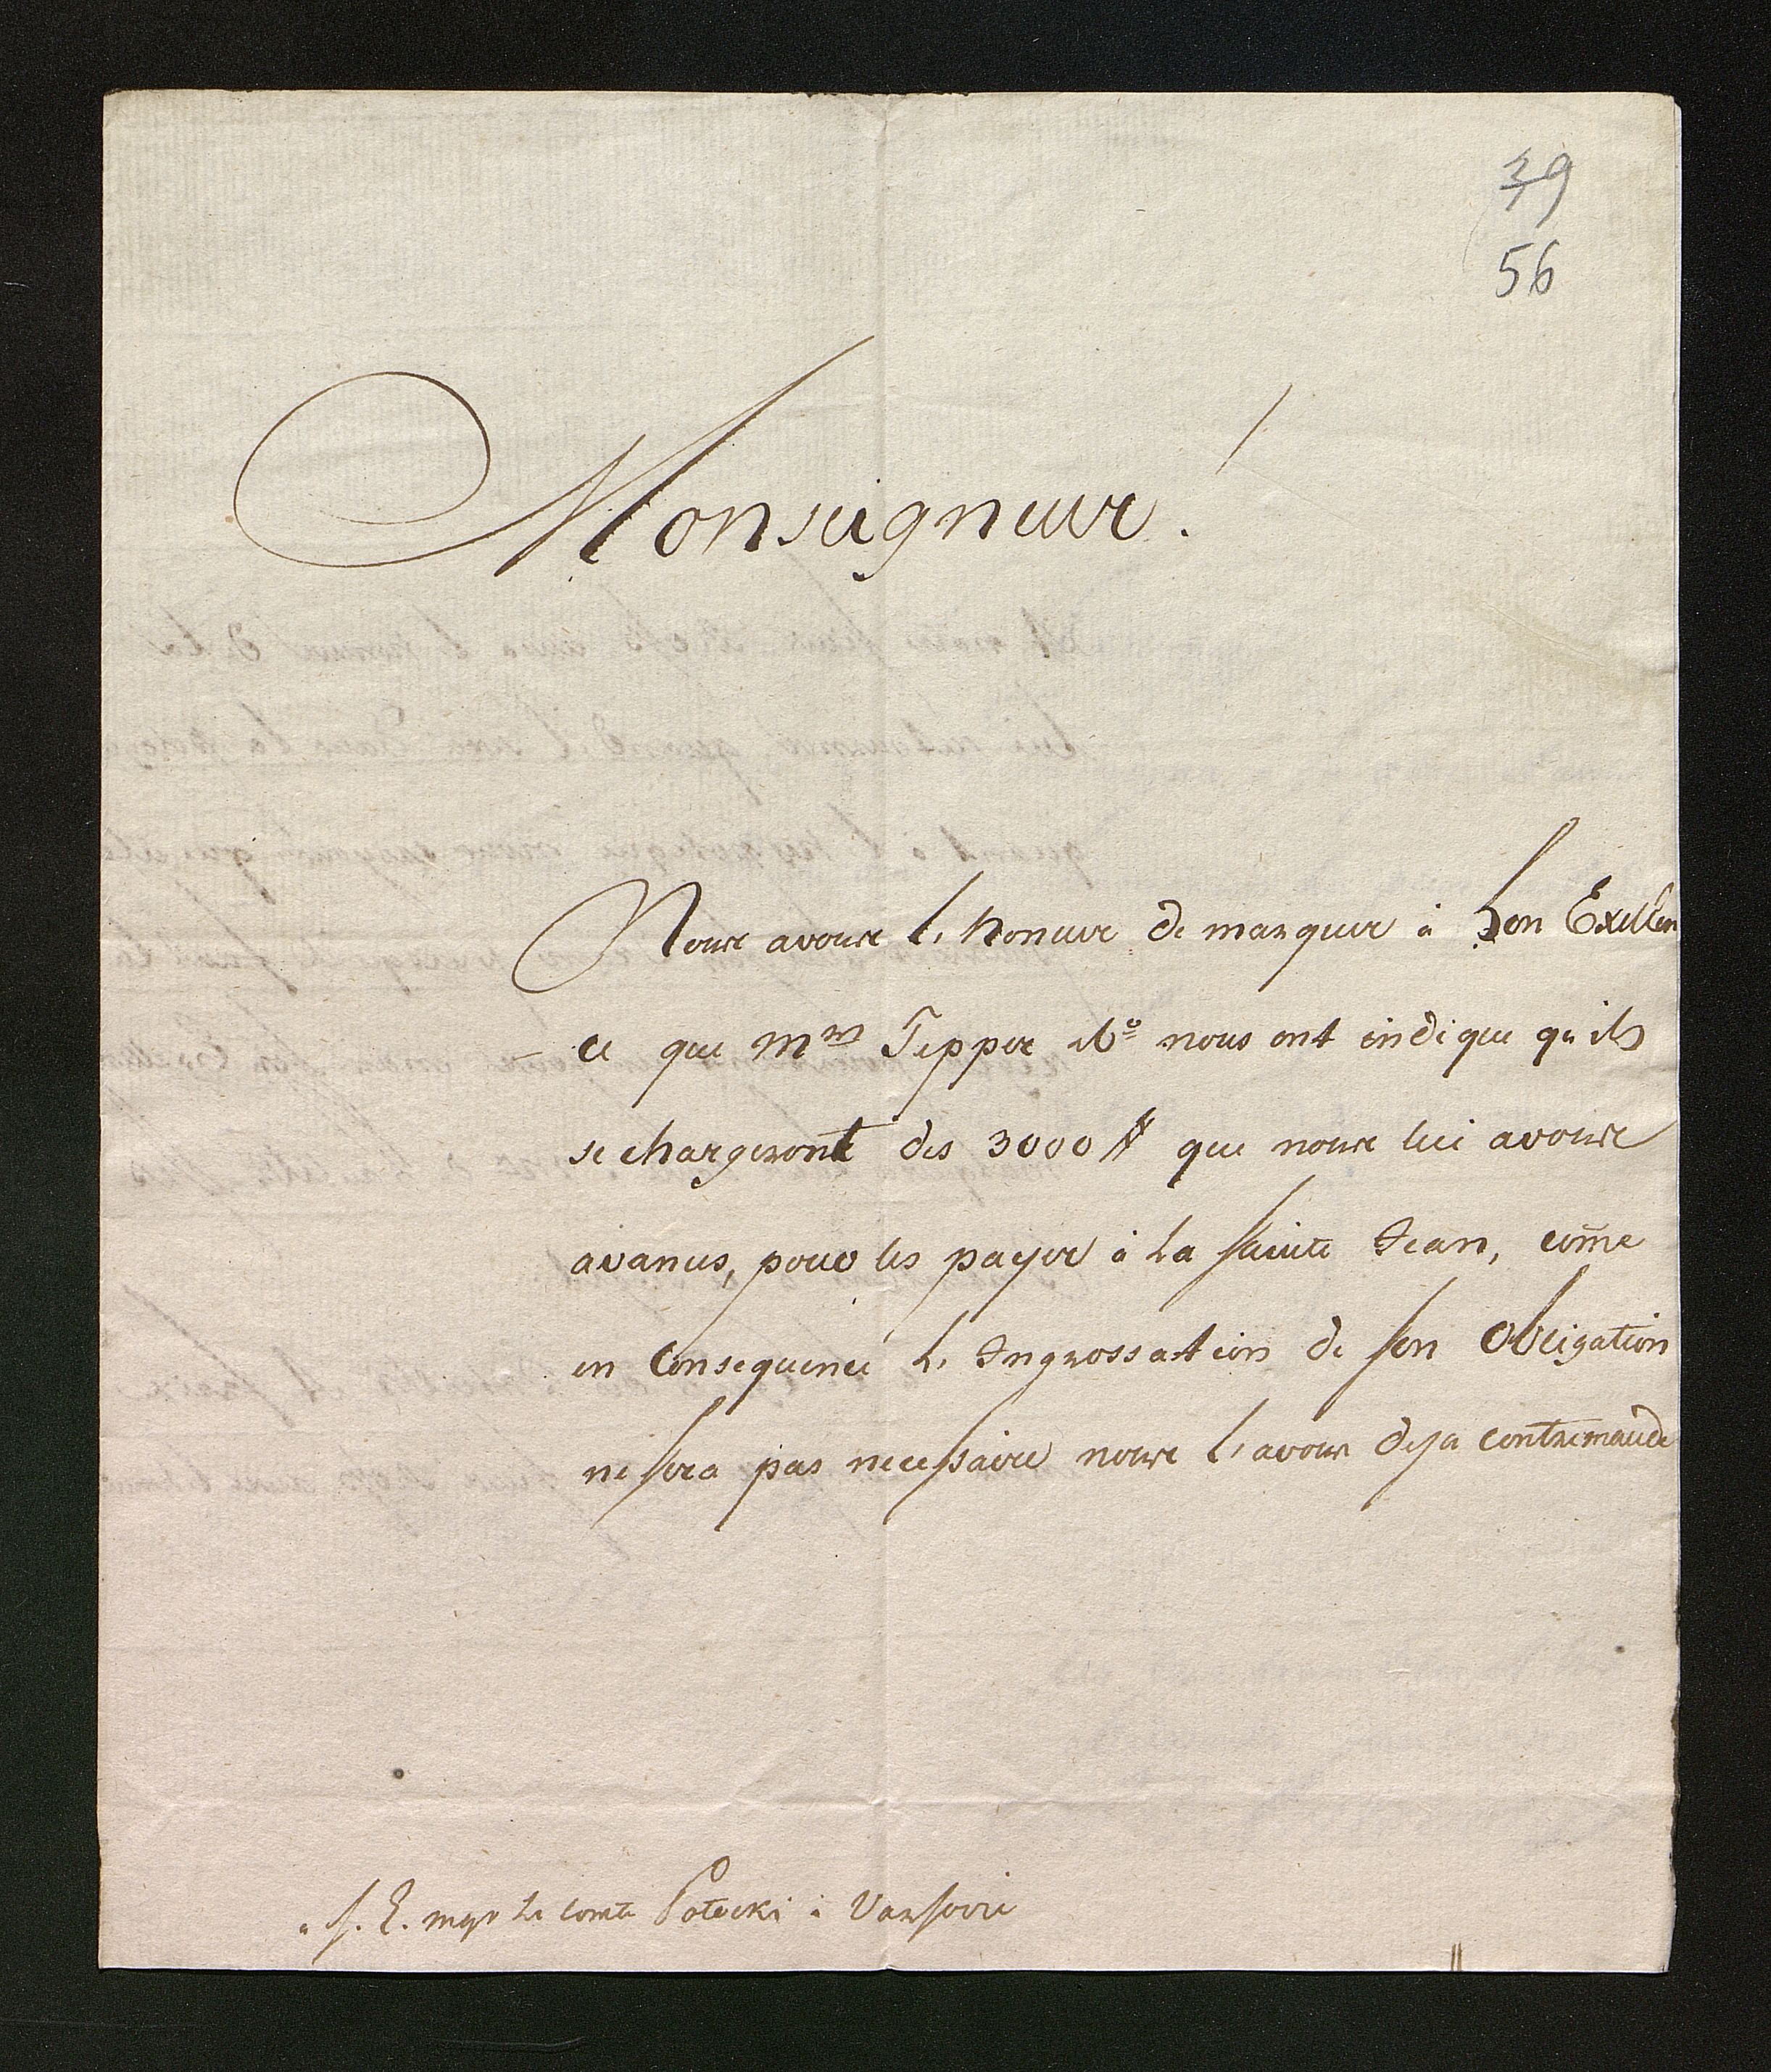 39
56
Monseigneur!
Nous avons l'honneur de marquer à Son Exellen
ce que Mrs Tepper & Co nous ont indique qu'ils
se chargeront des 3000 # que nous lui avons
avancés, pour les payer à la sainte Jean, come
en Consequence l'Ingrossation de son Obligation
ne sera pas necessaire nous l'avons deja contremandé
a S. E. Mgr le comte Potocki à Varsovie